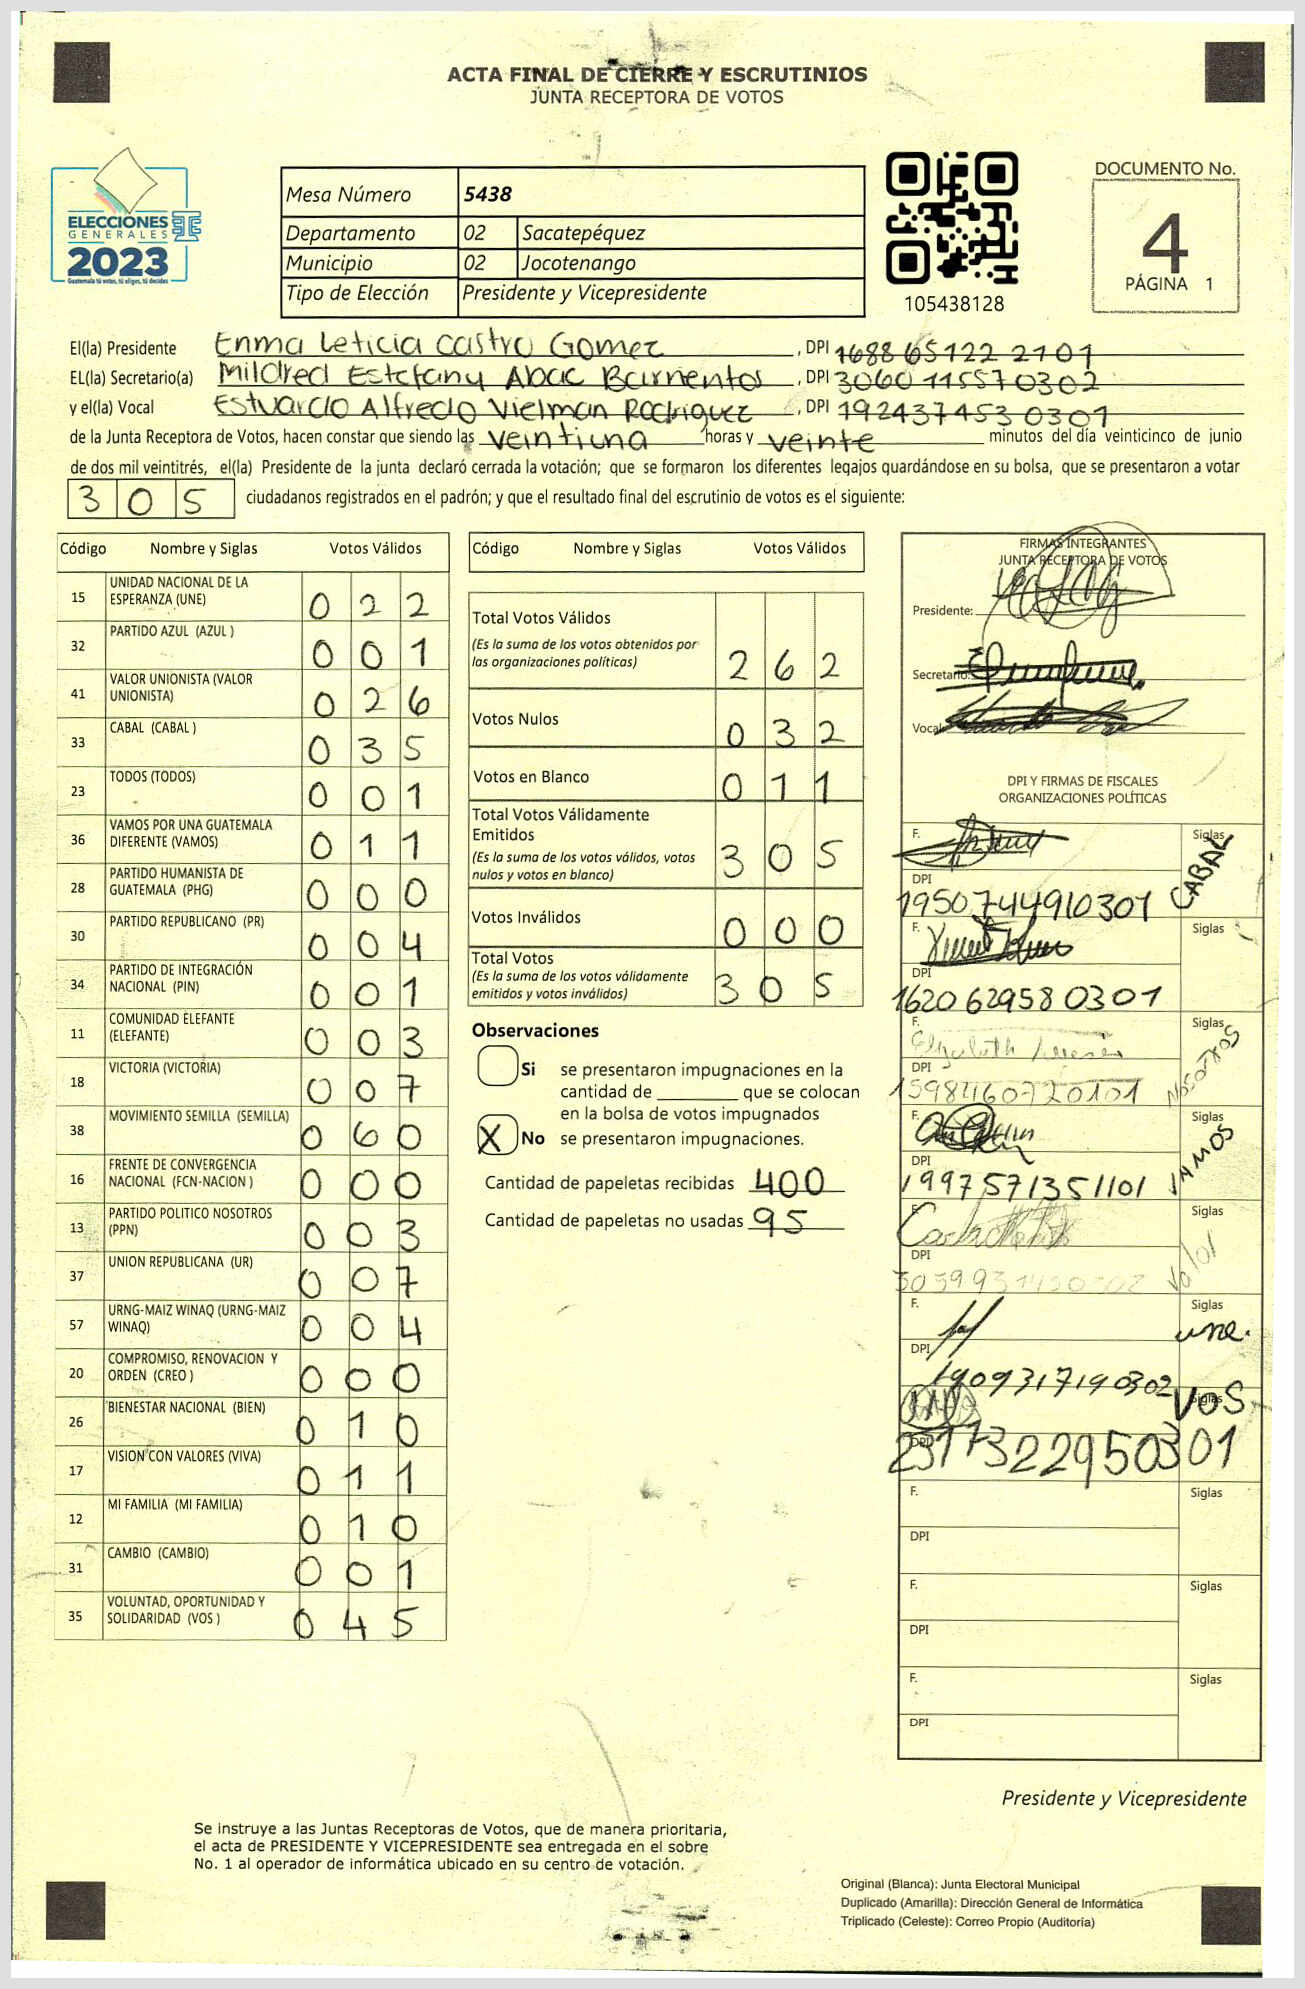 ACTA FINAL DE CIERRE Y ESCRUTINIOS
JUNTA RECEPTORA DE VOTOS
ELECCIONES
GENERALES
2023
Guatemala tú votas, tú eliges, tú decides
Mesa Número 5438
Departamento 02 Sacatepéquez
Municipio 02 Jocotenango
Tipo de Elección Presidente y Vicepresidente
105438128
DOCUMENTO No.
4
PÁGINA 1
El(la) Presidente Enma Leticia Castro Gomez, DPI 1688 65122 2101
EL(la) Secretario(a) Mildred Estefany Abac Barrientos, DPI 3060 11557 0302
y el(la) Vocal Estuardo Alfredo Vielman Rodriguez, DPI 192437453 0301
de la Junta Receptora de Votos, hacen constar que siendo las veintiuna horas y veinte minutos del día veinticinco de junio
de dos mil veintitrés, el(la) Presidente de la junta declaró cerrada la votación; que se formaron los diferentes legajos guardándose en su bolsa, que se presentaron a votar
305 ciudadanos registrados en el padrón; y que el resultado final del escrutinio de votos es el siguiente:
Código Nombre y Siglas Votos Válidos
15 UNIDAD NACIONAL DE LA ESPERANZA (UNE) 022
32 PARTIDO AZUL (AZUL ) 001
41 VALOR UNIONISTA (VALOR UNIONISTA) 026
33 CABAL (CABAL ) 035
23 TODOS (TODOS) 001
36 VAMOS POR UNA GUATEMALA DIFERENTE (VAMOS) 011
28 PARTIDO HUMANISTA DE GUATEMALA (PHG) 000
30 PARTIDO REPUBLICANO (PR) 004
34 PARTIDO DE INTEGRACIÓN NACIONAL (PIN) 001
11 COMUNIDAD ELEFANTE (ELEFANTE) 003
18 VICTORIA (VICTORIA) 007
38 MOVIMIENTO SEMILLA (SEMILLA) 060
16 FRENTE DE CONVERGENCIA NACIONAL (FCN-NACION ) 000
13 PARTIDO POLITICO NOSOTROS (PPN) 003
37 UNION REPUBLICANA (UR) 007
57 URNG-MAIZ WINAQ (URNG-MAIZ WINAQ) 004
20 COMPROMISO, RENOVACION Y ORDEN (CREO ) 000
26 BIENESTAR NACIONAL (BIEN) 010
17 VISION CON VALORES (VIVA) 011
12 MI FAMILIA (MI FAMILIA) 010
31 CAMBIO (CAMBIO) 001
35 VOLUNTAD, OPORTUNIDAD Y SOLIDARIDAD (VOS ) 045
Código Nombre y Siglas Votos Válidos
Total Votos Válidos 262
(Es la suma de los votos obtenidos por
las organizaciones políticas)
Votos Nulos 032
Votos en Blanco 011
Total Votos Válidamente
Emitidos 305
(Es la suma de los votos válidos, votos
nulos y votos en blanco)
Votos Inválidos 000
Total Votos 305
(Es la suma de los votos válidamente
emitidos y votos inválidos)
Observaciones
Si se presentaron impugnaciones en la
cantidad de ________ que se colocan
en la bolsa de votos impugnados
X No se presentaron impugnaciones.
Cantidad de papeletas recibidas 400
Cantidad de papeletas no usadas 95
FIRMAS INTEGRANTES
JUNTA RECEPTORA DE VOTOS
Presidente:
Secretario:
Vocal
DPI Y FIRMAS DE FISCALES
ORGANIZACIONES POLÍTICAS
F. Siglas CABAL
DPI
1950744910301
F. Siglas
DPI
1620 62958 0301
F. Elizabeth Siglas NOSOTROS
DPI
1598460720101
F. Siglas VAMOS
DPI
1997571351101
F. Siglas Valor
DPI
F. Siglas une.
DPI
1909317190302
Siglas VOS
DPI
2317322950301
F. Siglas
DPI
F. Siglas
DPI
F. Siglas
DPI
Presidente y Vicepresidente
Se instruye a las Juntas Receptoras de Votos, que de manera prioritaria,
el acta de PRESIDENTE Y VICEPRESIDENTE sea entregada en el sobre
No. 1 al operador de informática ubicado en su centro de votación.
Original (Blanca): Junta Electoral Municipal
Duplicado (Amarilla): Dirección General de Informática
Triplicado (Celeste): Correo Propio (Auditoría)